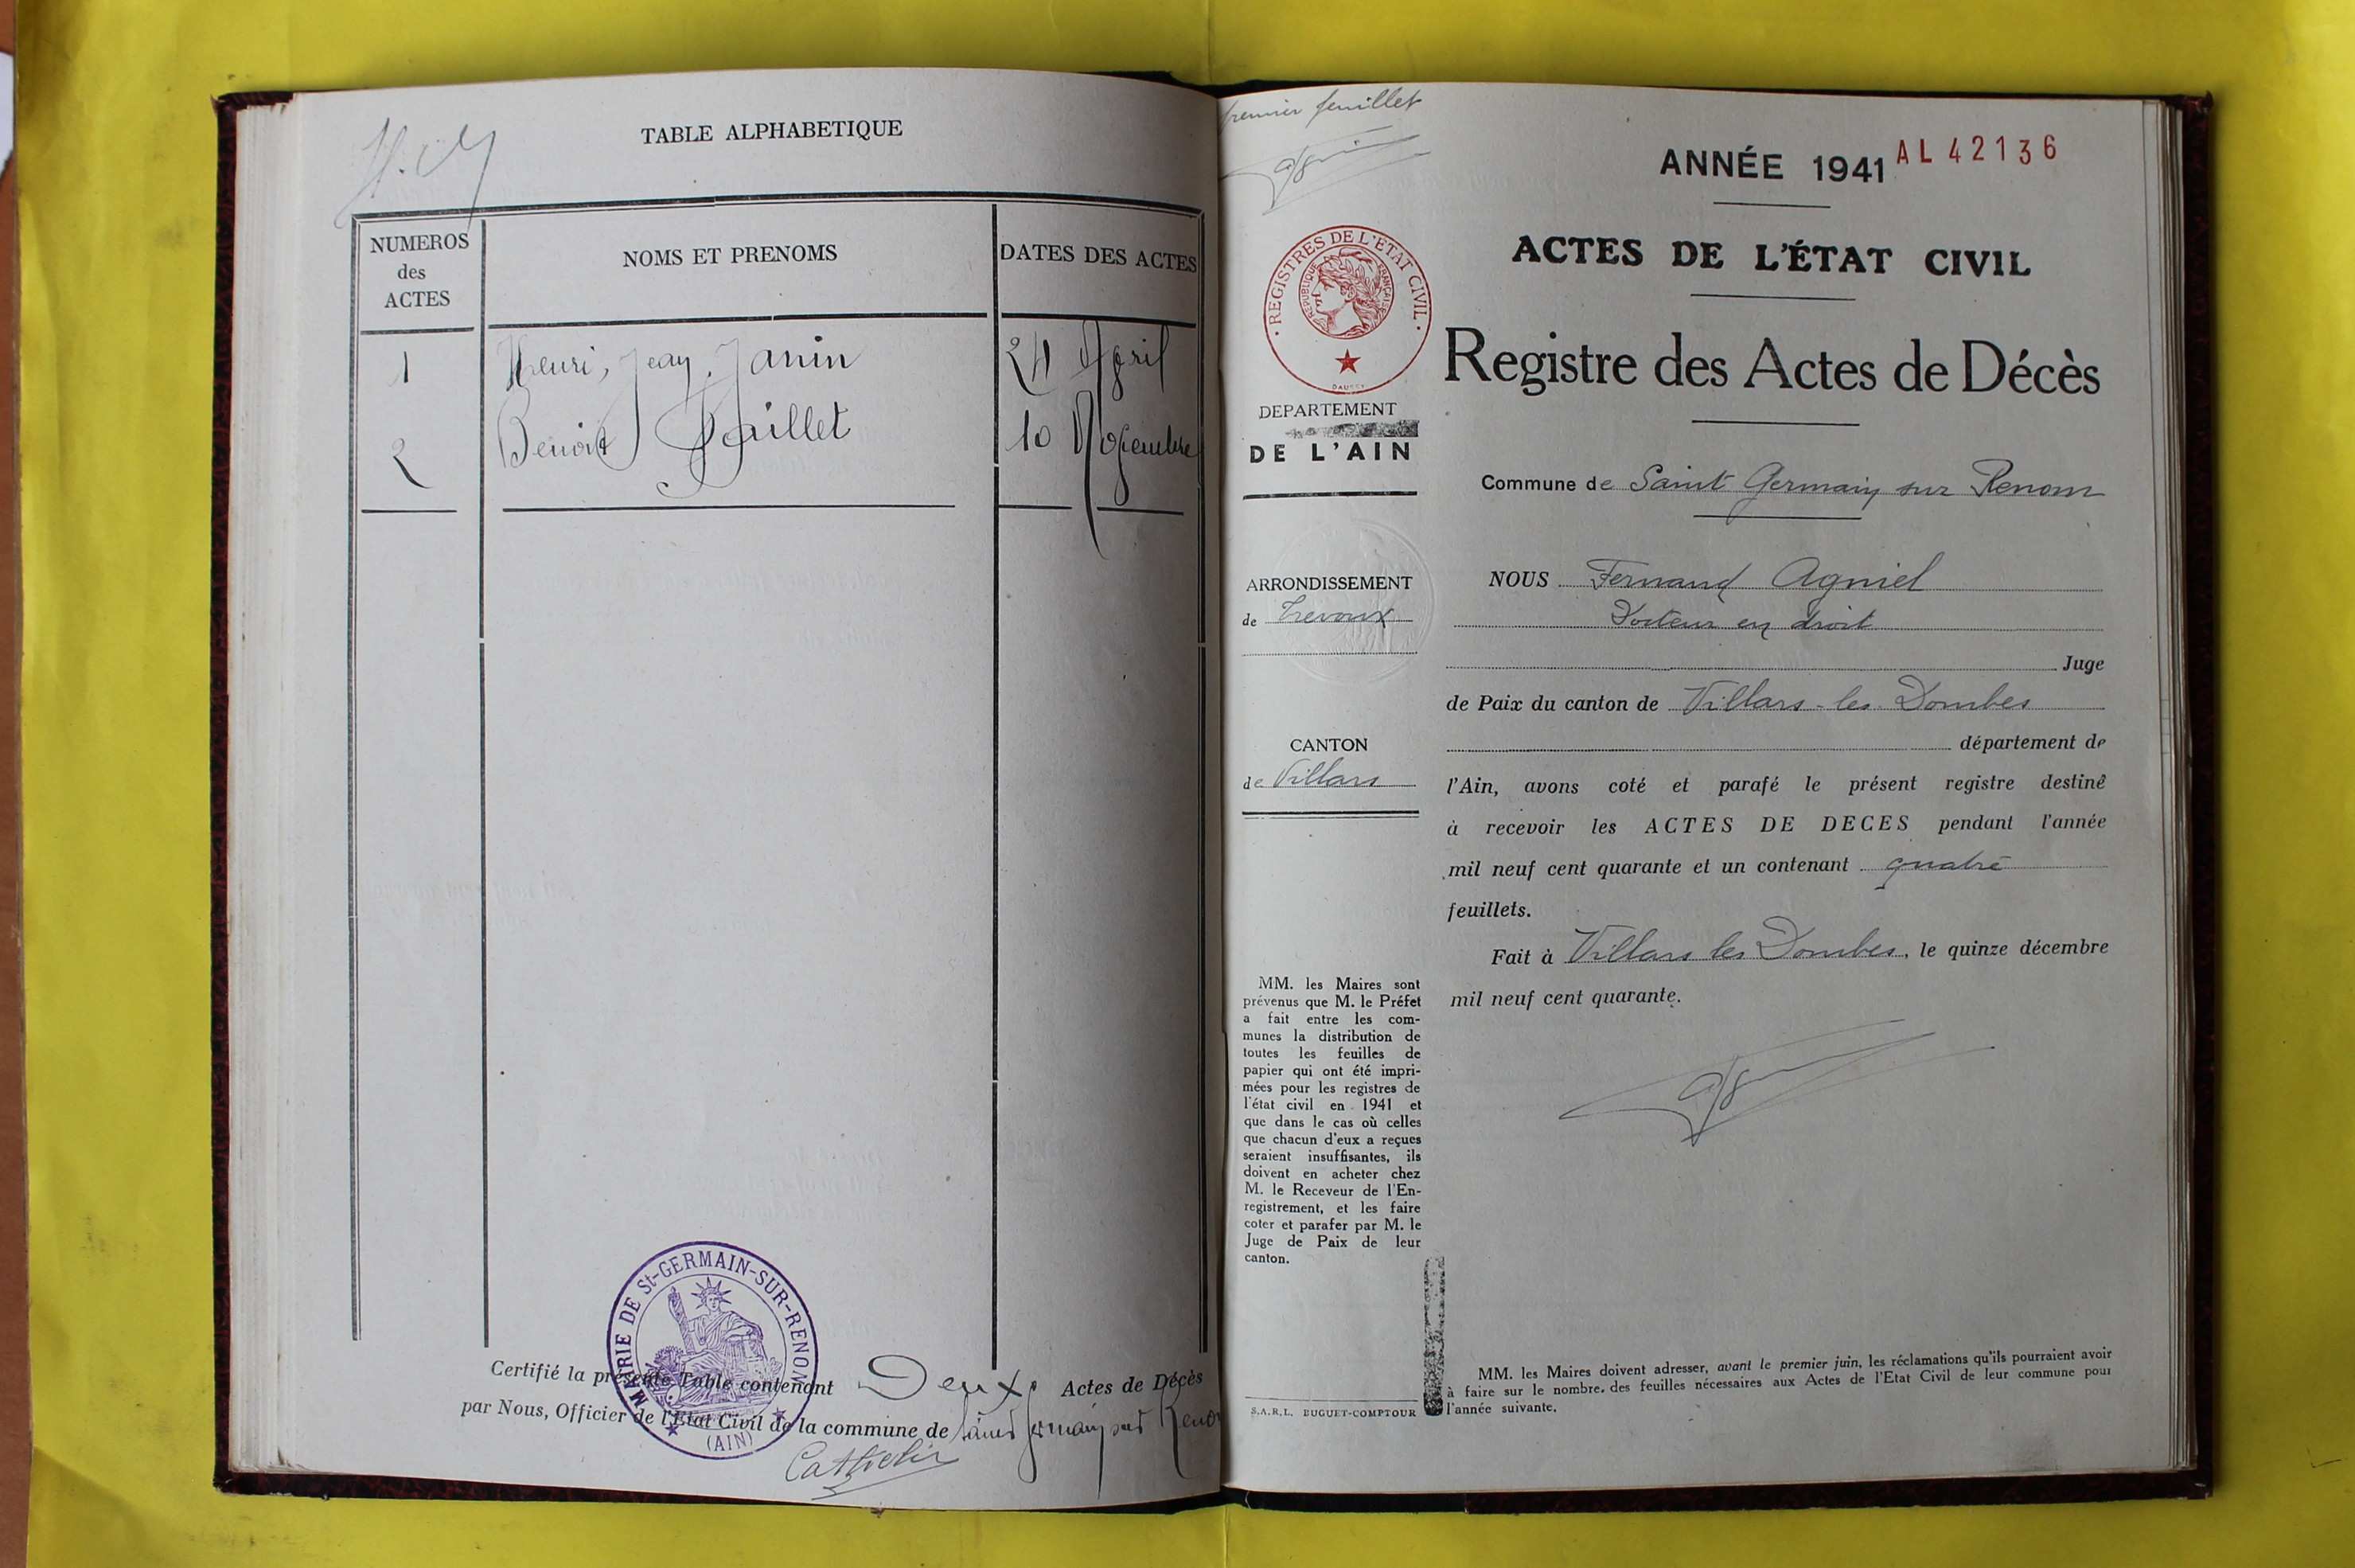 TABLE ALPHABETIQUE
NUMEROS
des
ACTES
NOMS ET PRENOMS
DATES DES ACTES
1 Henri, Jean, Janin 24 Avril
2 Benoit Paillet 10 Novembre
MAIRIE DE St-GERMAIN-SUR-RENON
(AIN)
Certifié la présente Table contenant Deux Actes de Décès
par Nous, Officier de l'Etat Civil de la commune de Saint Germain sur Renon
premier feuillet
ANNÉE 1941 AL 42136
ACTES DE L'ÉTAT CIVIL
Registre des Actes de Décès
REGISTRES DE L'ETAT CIVIL
REPUBLIQUE FRANÇAISE
DEPARTEMENT
DE L'AIN
Commune de Saint Germain sur Renom
ARRONDISSEMENT
de Trevoux
CANTON
de Villars
NOUS Fernand Agniel
Docteur en droit
Juge
de Paix du canton de Villars-les Dombes
département de
l'Ain, avons coté et parafé le présent registre destiné
à recevoir les ACTES DE DECES pendant l'année
mil neuf cent quarante et un contenant quatre
feuillets.
Fait à Villars les Dombes, le quinze décembre
mil neuf cent quarante.
MM. les Maires sont
prévenus que M. le Préfet
a fait entre les com-
munes la distribution de
toutes les feuilles de
papier qui ont été impri-
mées pour les registres de
l'état civil en 1941 et
que dans le cas où celles
que chacun d'eux a reçues
seraient insuffisantes, ils
doivent en acheter chez
M. le Receveur de l'En-
registrement, et les faire
coter et parafer par M. le
Juge de Paix de leur
canton.
S.A.R.L. BUGUET-COMPTOUR
MM. les Maires doivent adresser, avant le premier juin, les réclamations qu'ils pourraient avoir
à faire sur le nombre. des feuilles nécessaires aux Actes de l'Etat Civil de leur commune pour
l'année suivante.